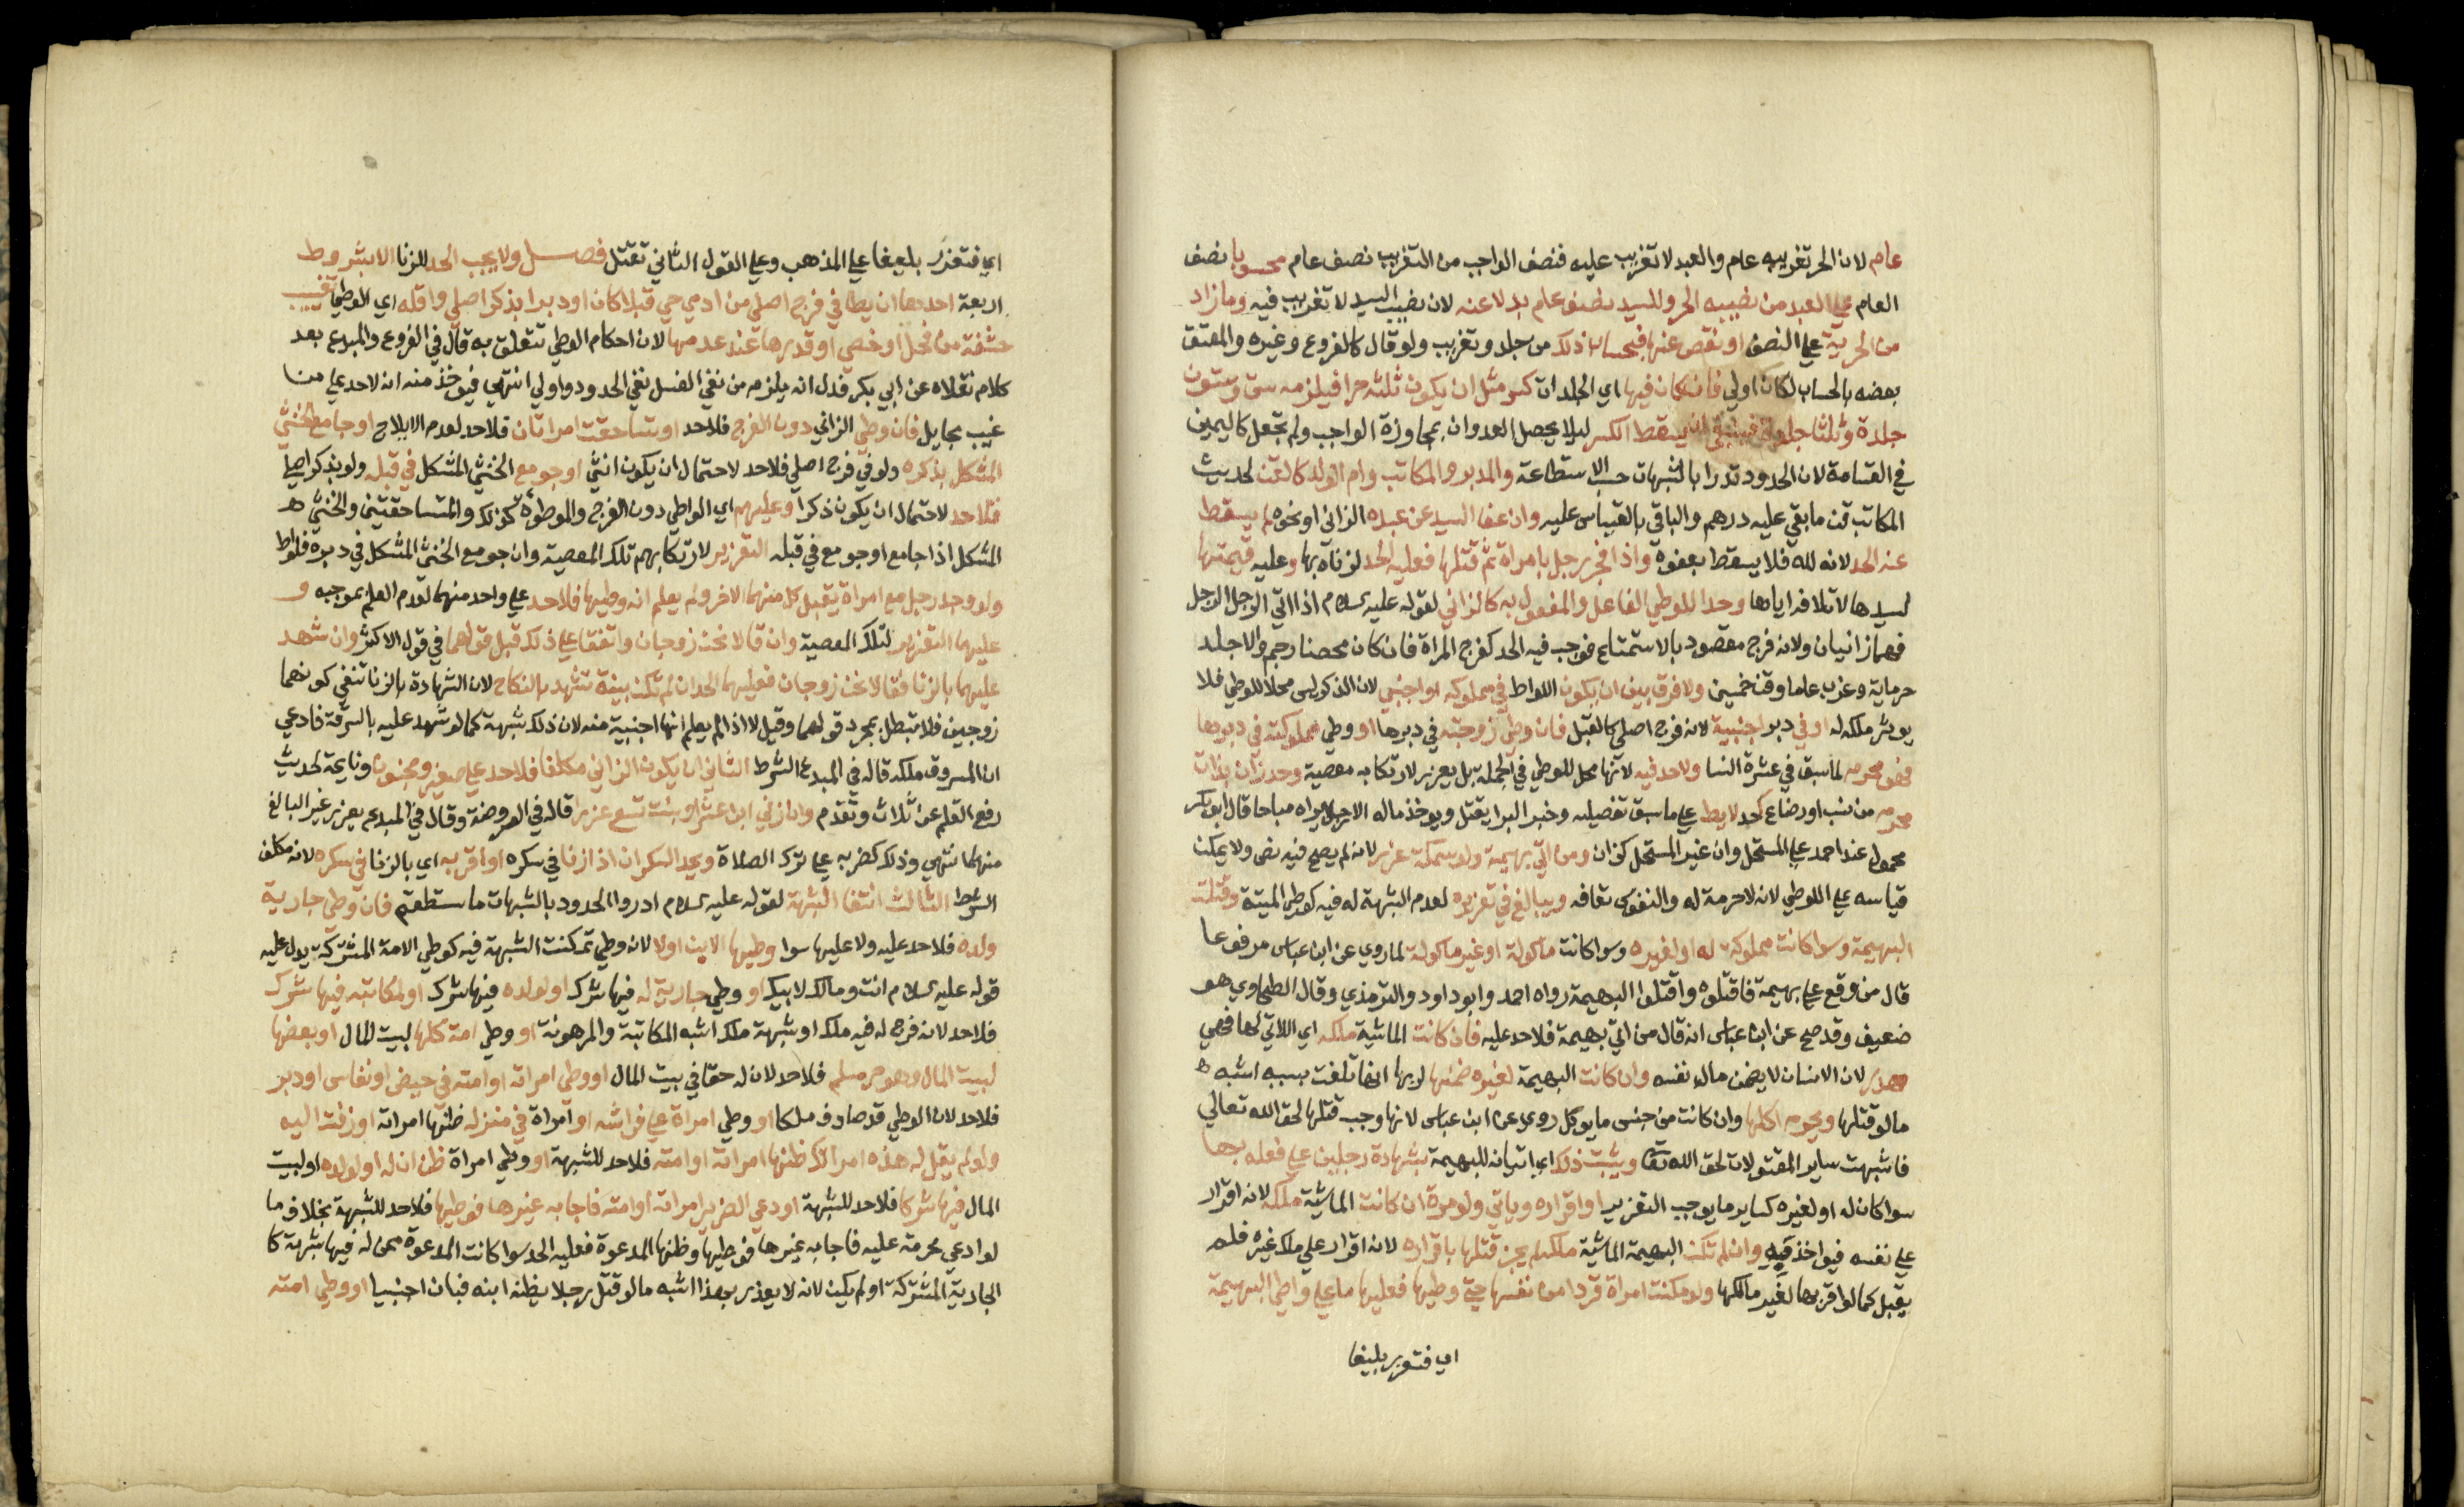 عام لان الحر تغريبه عام والعبد لا تغريب عليه فنصف الواجب من التغريب نصف عام محسوبا نصف
العام على العبد من نصيبه الحر وللسيد نصف عام بدلا عنه لان نصيب السيد لا تغريب فيه وما زاد
من الحرية على النصف او نقص عنها فبحساب ذلك من جلد وتغريب ولو قال كالفروع وغيره والمعتق
بعضه بالحساب لكان اولي فان كان فيها اي الجلدات كسر مثل ان يكون ثلثه حرا فيلزمه ست وستون
جلدة وثلثا جلدة فينبغي ان يسقط الكسر ليلا يحصل العدوان بمجاوزة الواجب ولم تجعل كاليمين
في القسامة لان الحدود تدرا بالشبهات حسب الاستطاعة والمدبر والمكاتب وام الولد كالقن لحديث
المكاتب قن ما بقي عليه درهم والباقي بالقياس عليه وان عفا السيد عن عبده الزاني او نحوه لم يسقط
عنه الحد لانه لله فلا يسقط بعفوه واذا فجر رجل بامراة ثم قتلها فعليه الحد لزناه بها وعليه قيمتها
لسيدها لاتلافه اياها وحد اللوطي الفاعل والمفعول به كالزاني لقوله عليه السلام اذا اتي الرجل الرجل
فهما زانيان ولانه فرج مقصود بالاستمتاع فوجب فيه الحد كفرج المراة فان كان محصنا رجم والا جلد
حر ماية وغرب عاما وقن خمسين ولا فرق بين ان يكون اللواط في مملوكه او اجنبي لان الذكر ليس محلا للوطي فلا
يوثر ملكه له او في دبر اجنبية لانه فرج اصلي كالقبل فان وطي زوجته في دبرها او وطي مملوكته في دبرها
فهو محرم لما سبق في عشرة النسا ولا حد فيه لانها محل للوطي في الجملة بل يعزر لارتكابه معصية وحد زان بذات
محرم من نسب او رضاع كحد لايط على ما سبق تفصيله وخبر البرا يقتل ويوخذ ماله الا رجل يراه مباحا قال ابو بكر
محمول عند احمد على المستحل وان غير المستحل كزان ومن اتي بهيمة ولو سمكة عزر لانه لم يصح فيه نص ولا يمكن
قياسه على اللوطي لانه لا حرمة له والنفوس تعافه ويبالغ في تعزيره لعدم الشبهة له فيه كوطي الميتة وقتلت
البهيمة وسوا كانت مملوكة له او لغيره وسوا كانت ماكولة او غير ماكولة لما روي عن ابن عباس مرفوعا
قال من وقع على بهيمة فاقتلوه واقتلوا البهيمة رواه احمد وابو داود والترمذي وقال الطحاوي هو
ضعيف وقد صح عن ابن عباس انه قال من اتي بهيمة فلا حد عليه فان كانت الماشية ملكه اي اللاتي لها فهي
هدر لان الانسان لا يضمن مال نفسه وان كانت البهيمة لغيره ضمنها لربها انها تلفت بسببه اشبه
ما لو قتلها ويحرم اكلها وان كانت من جنس ما يوكل روي عن ابن عباس لانها وجب قتلها لحق الله تعالي
فاشبهت ساير المقتولات لحق الله تعا ويثبت ذلك اي اتيانه للبهيمة بشهادة رجلين على فعله بها
سوا كان له او لغيره كساير ما يوجب التعزير او اقراره وياتي ولو مرة ان كانت الماشية ملكه لانه اقرار
على نفسه فيواخذ به وان لم تكن البهيمة الماشية ملكه لم يجز قتلها باقراره لانه اقرار على ملك غيره فلم
يقبل كما لو اقر بها لغير مالكها ولو مكنت امراة قردا من نفسها حتي وطيها فعليها ما على واطي البهيمة
اي فتعزر بليغا
اي فتعزر بليغا على المذهب وعلى القول الثاني تقتل فصل ولا يجب الحد للزنا الا بشروط
اربعة احدها ان يطا في فرج اصلي من ادمي حي قبلا كان او دبرا بذكر اصلي واقله اي الوطي تغييب
حشفة من فحل او خصي او قدرها عند عدمها لان احكام الوطي تتعلق به قال في الفروع والمبدع بعد
كلام نقلاه عن ابي بكر فدل انه يلزمه من نفي الغسل نفي الحدود واولي انتهي فيوخذ منه انه لا حد على من
غيب بحايل فان وطي الزاني دون الفرج فلا حد او تساحقت امراتان فلا حد لعدم الايلاج او جامع الخنثي
المشكل بذكره ولو في فرج اصلي فلا حد لاحتمال ان يكون انثي او جومع الخنثي المشكل في قبله ولو بذكر اصلي
فلا حد لاحتمال ان يكون ذكرا وعليهم اي الواطي دون الفرج والموطوة كذلك والمتساحقتين والخنثي
المشكل اذا جامع او جومع في قبله التعزير لارتكابهم تلك المعصية وان جومع الخنثي المشكل في دبره فلواط
ولو وجد رجل مع امراة يقبل كل منهما الاخر ولم يعلم انه وطيها فلا حد على واحد منهما لعدم العلم بموجبه و
عليهما التعزير لتلك المعصية وان قالا نحن زوجان واتفقا على ذلك قبل قولهما في قول الاكثر وان شهد
عليهما بالزنا فقالا نحن زوجان فعليهما الحد ان لم تكن بينة تشهد بالنكاح لان الشهادة بالزنا تنفي كونهما
زوجين فلا تبطل بمجرد قولهما وقيل لا اذا لم يعلم انها اجنبية منه لان ذلك شبهة كما لو شهد عليه بالسرقة فادعي
ان المسروق ملكه قاله في المبدع الشرط الثاني ان يكون الزاني مكلفا فلا حد على صغير ومجنون ونايم لحديث
رفع القلم عن ثلاث وتقدم وان زني ابن عشر او بنت تسع عزرا قاله في الروضة وقال في المبدع يعزر غير البالغ
منهما انتهي وذلك كضربه على ترك الصلاة ويحد السكران اذا زنا في سكره او اقر به اي بالزنا في سكره لانه مكلف
الشرط الثالث انتفا الشبهة لقوله عليه السلام ادروا الحدود بالشبهات ما استطعتم فان وطي جارية
ولده فلا حد عليه ولا عليها سوا وطيها الابن او لا لانه وطي تمكنت الشبهة فيه كوطي الامة المشتركة يدل عليه
قوله عليه السلام انت ومالك لابيك او وطي جارية له فيها شرك او لولده فيها شرك او لمكاتبه فيها شرك
فلا حد لانه فرج له فيه ملك او شبهة ملك اشبه المكاتبة والمرهونة او وطي امة كلها لبيت المال او بعضها
لبيت المال وهو حر مسلم فلا حد لان له حقا في بيت المال او وطي امراته او امته في حيض او نفاس او دبر
فلا حد لان الوطي قد صادف ملكا او وطي امراة على فراشه او امراة في منزله ظنها امراته او زفت اليه
ولو لم يقل له هذه امراتك ظنها امراته او امته فلا حد للشبهة او وطي امراة ظن ان له او لولده او لبيت
المال فيها شركا فلا حد للشبهة او دعي الضرير امراته او امته فاجابه غيرها فوطيها فلا حد للشبهة بخلاف ما
لو ادعي محرمة عليه فاجابه غيرها فوطيها وظنها المدعوة فعليه الحد سوا كانت المدعوة ممن له فيها شبهة كا
الجارية المشتركة او لم يكن لانه لا يعذر بهذا اشبه ما لو قتل رجلا يظنه ابنه فبان اجنبيا او وطي امته